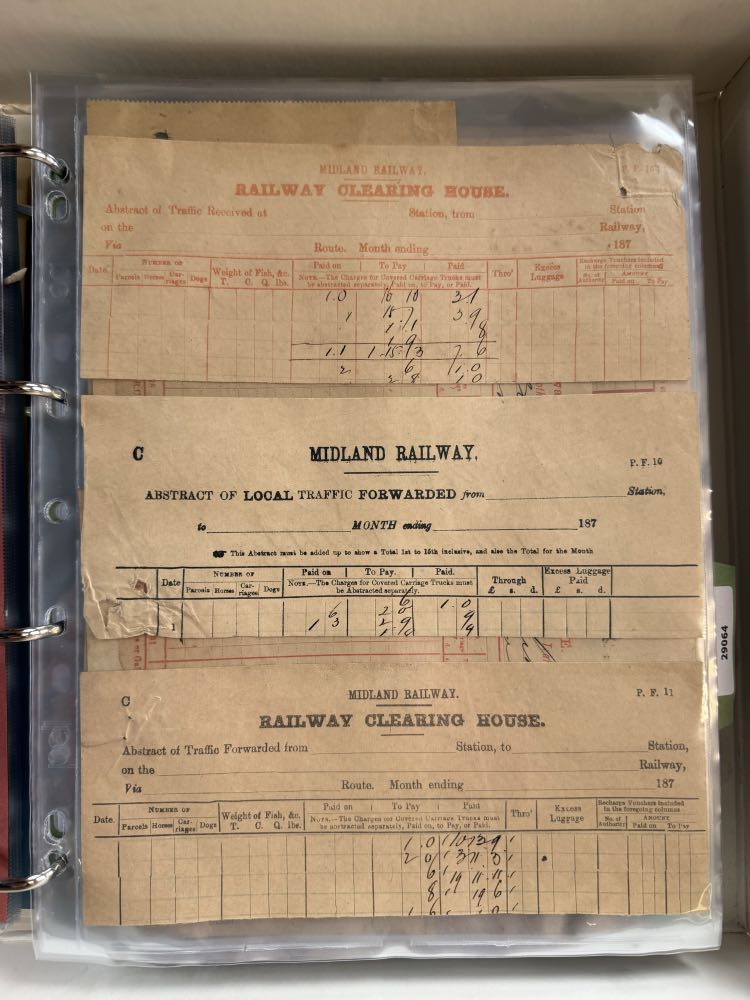 MIDLAND RAILWAY.
RAILWAY CLEARING HOUSE.
Abstract of Traffic Received at Station, from Station
on the Railway,
Via Route. Month ending 187
Date. NUMBER OF Parcels Horses Carriages Dogs Weight of Fish, &c. T. C. Q. lbs. Paid on To Pay Paid Thro' Excess Luggage Recharge Vouchers included in the foregoing columns
NOTE.—The Charges for Covered Carriage Trucks must be abstracted separately, Paid on, to Pay, or Paid. No. of Authority AMOUNT Paid on To Pay
1.0 10 10
1 3 9
8
1.1 1 15 3 7 6
2 6 1.0
2 8 1 0
C
MIDLAND RAILWAY.
P. F. 10
ABSTRACT OF LOCAL TRAFFIC FORWARDED from Station,
to MONTH ending 187
☞ This Abstract must be added up to show a Total 1st to 15th inclusive, and also the Total for the Month
Date NUMBER OF Parcels Horses Carriages Dogs Paid on To Pay. Paid. Through £ s. d. Excess Luggage Paid £ s. d.
NOTE.—The Charges for Covered Carriage Trucks must be Abstracted separately.
6 1.0
6 2 0 9
1 1 3 2 9 9
29064
C
MIDLAND RAILWAY.
P. F. 11
RAILWAY CLEARING HOUSE.
Abstract of Traffic Forwarded from Station, to Station,
on the Railway,
Via Route. Month ending 187
Date. NUMBER OF Parcels Horses Carriages Dogs Weight of Fish, &c. T. C. Q. lbs. Paid on To Pay Paid Thro' Excess Luggage Recharge Vouchers included in the foregoing columns
NOTE.—The Charges for Covered Carriage Trucks must be abstracted separately, Paid on, to Pay, or Paid. No. of Authority AMOUNT Paid on To Pay
1 0
2 0
6 19 11 11
8 19 6